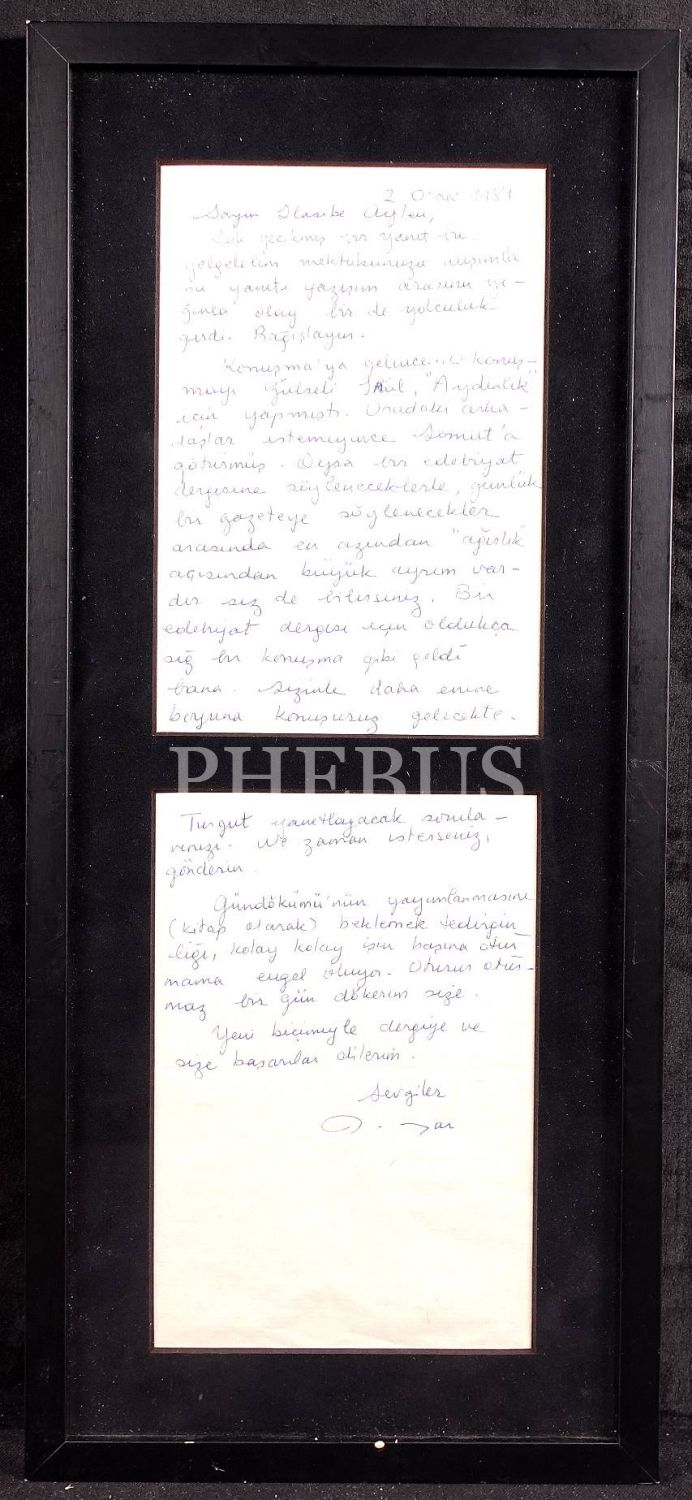 2 Ocak 1981
Sayın Hasibe Ayten,
Çok gecikmiş bir yanıt bu.
mektubunuza
bu yanıtı yazışım arasına yı-
ğınla olay bir de yolculuk
girdi. Bağışlayın.
Konuşma'ya gelince... O konuş-
mayı Gülseli İnal, "Aydınlık"
için yapmıştı. Oradaki arka-
daşlar istemeyince Somut'a
götürmüş. Oysa bir edebiyat
dergisine söyleneceklerle, günlük
bir gazeteye söylenecekler
arasında en azından "ağırlık"
açısından büyük ayrım var-
dır siz de bilirsiniz. Bir
edebiyat dergisi için oldukça
sığ bir konuşma gibi geldi
bana. Sizinle daha enine
boyuna konuşuruz gelecekte.
PHEBUS
Turgut yanıtlayacak sorula-
rınızı. Ne zaman isterseniz,
gönderin.
Gündökümü'nün yayımlanmasını
(kitap olarak) beklemek tedirgin
liği, kolay kolay işin başına otur
mama engel oluyor. Oturur otur-
maz bir gün dökerim size.
Yeni biçimiyle dergiye ve
size başarılar dilerim.
Sevgiler